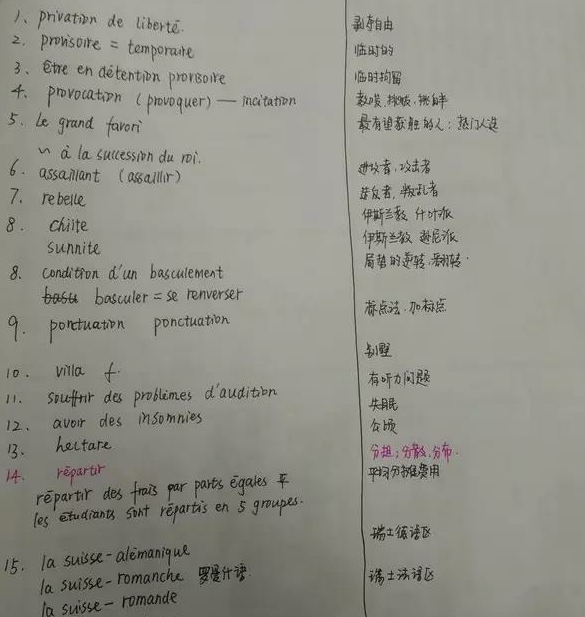 1、privation de liberté.
剥夺自由
2. provisoire = temporaire
临时的
3. être en détention provisoire
临时拘留
4. provocation (provoquer) — incitation
教唆、挑拨、挑衅
5. Le grand favori
最有望获胜的人；热门人选
~ à la succession du roi.
6. assaillant (assaillir)
进攻者,攻击者
7. rebelle
造反者,叛乱者
8. chiite
伊斯兰教 什叶派
sunnite
伊斯兰教 逊尼派
8. condition d'un basculement
局势的逆转、翻转.
basculer = se renverser
9. ponctuation ponctuation
标点法.加标点
10. villa f.
别墅
11. souffrir des problèmes d'audition
有听力问题
12. avoir des insomnies
失眠
13. hectare
公顷
14. répartir
分担；分散、分布.
répartir des frais par parts égales
平均分摊费用
les étudiants sont répartis en 5 groupes.
15. la suisse-alémanique
瑞士德语区
la suisse-romanche 罗曼什语.
la suisse-romande
瑞士法语区